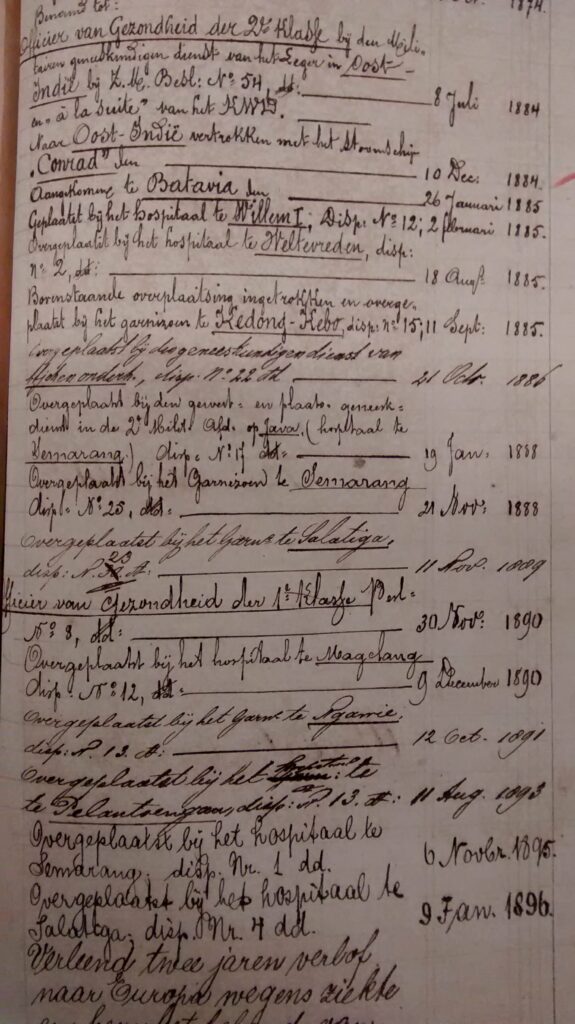 1874.
Benoemd tot:
Officier van Gezondheid der 2e Klasse bij den Mili-
tairen geneeskundigen dienst van het Leger in Oost-
Indië bij Z.M. Besl: No 54, dd: 8 Juli 1884
en "à la suite" van het
Naar Oost-Indië vertrokken met het stoomschip
"Conrad" den 10 Dec: 1884.
Aangekomen te Batavia den 26 Januari 1885
Geplaatst bij het hospitaal te Willem I, Disp: No 12; 2 februari 1885.
Overgeplaatst bij het hospitaal te Weltevreden, disp:
no 2, dd: 18 Augs 1885.
Bovenstaande overplaatsing ingetrokken en overge-
plaatst bij het garnizoen te Kedong-Kebo, disp: no 15, 11 Sept: 1885.
Overgeplaatst bij den geneeskundigen dienst van
disp. No. 22 dd 21 Octr. 1886
Overgeplaatst bij den gewest- en plaats. geneesk=
dienst in de 2e Milit. Afd. op Java, (hospitaal te
Semarang) disp= No 17 dd= 19 Jan: 1888
Overgeplaatst bij het Garnizoen te Semarang
disp= No 25, dd= 21 Nov: 1888
Overgeplaatst bij het Garns te Salatiga,
disp: N. 23 dd: 11 Nov. 1889
Officier van Gezondheid der 1e Klasse Besl=
No 8, dd= 30 Nov: 1890
Overgeplaatst bij het hospitaal te Magelang
disp. No 12, dd= 9 December 1890
Overgeplaatst bij het Garns te Ngawie,
disp: N. 13. dd: 12 Oct. 1891
Overgeplaatst bij het hospitaal te
te Pelantoengan, disp: N. 13. dd: 11 Aug. 1893
Overgeplaatst bij het hospitaal te
Semarang. disp. Nr. 1 dd. 6 Novbr. 1895.
Overgeplaatst bij het hospitaal te
Salatiga, disp. Nr. 4 dd. 9 Jan. 1896.
Verleend twee jaren verlof
naar Europa wegens ziekte